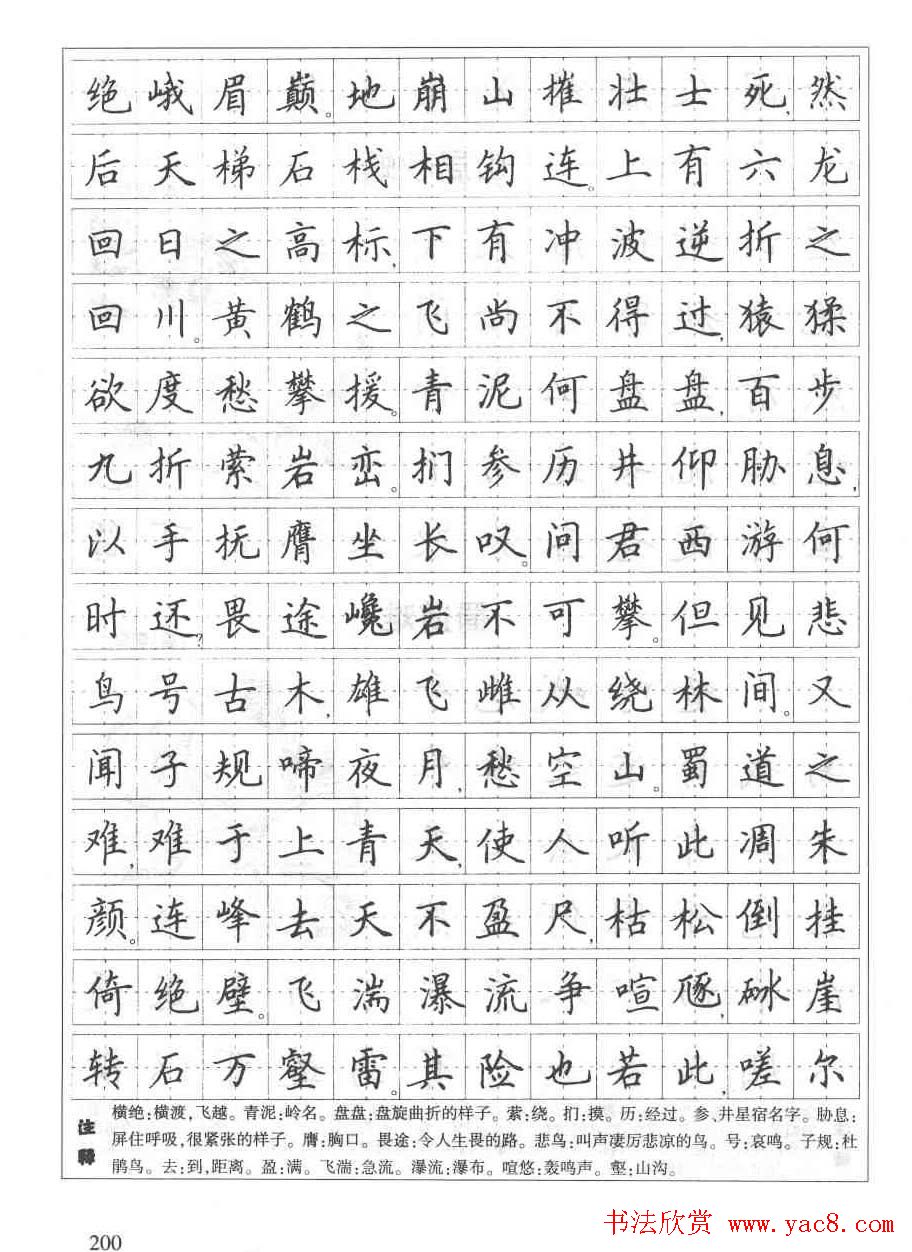 绝峨眉巅。地崩山摧壮士死,然
后天梯石栈相钩连。上有六龙
回日之高标,下有冲波逆折之
回川。黄鹤之飞尚不得过,猿猱
欲度愁攀援。青泥何盘盘,百步
九折萦岩峦。扪参历井仰胁息,
以手抚膺坐长叹。问君西游何
时还?畏途巉岩不可攀。但见悲
鸟号古木,雄飞雌从绕林间。又
闻子规啼夜月,愁空山。蜀道之
难,难于上青天,使人听此凋朱
颜。连峰去天不盈尺,枯松倒挂
倚绝壁。飞湍瀑流争喧豗,砯崖
转石万壑雷。其险也若此,嗟尔
注释
横绝:横渡,飞越。青泥:岭名。盘盘:盘旋曲折的样子。萦:绕。扪:摸。历:经过。参、井星宿名字。胁息:
屏住呼吸,很紧张的样子。膺:胸口。畏途:令人生畏的路。悲鸟:叫声凄厉悲凉的鸟。号:哀鸣。子规:杜
鹃鸟。去:到,距离。盈:满。飞湍:急流。瀑流:瀑布。喧悠:轰鸣声。壑:山沟。
200
书法欣赏 www.yac8.com